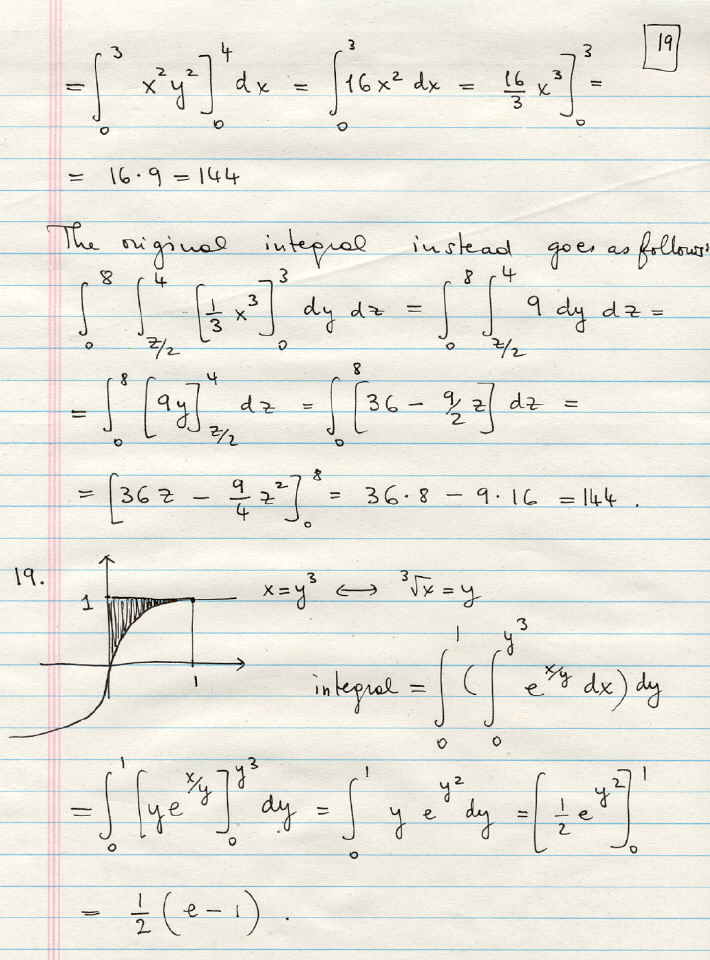 19
= ∫₀³ x²y² ]₀⁴ dx = ∫₀³ 16x² dx = 16/3 x³ ]₀³ =
= 16·9 = 144
The original integral instead goes as follows:
∫₀⁸ ∫_{z/2}^4 [1/3 x³]₀³ dy dz = ∫₀⁸ ∫_{z/2}^4 9 dy dz =
= ∫₀⁸ [9y]_{z/2}^4 dz = ∫₀⁸ [36 - 9/2 z] dz =
= [36z - 9/4 z²]₀⁸ = 36·8 - 9·16 = 144.
19.
1
1
x = y³ ⟷ ³√x = y
integral = ∫₀¹ (∫₀^{y³} e^{x/y} dx) dy
= ∫₀¹ [y e^{x/y}]₀^{y³} dy = ∫₀¹ y e^{y²} dy = [1/2 e^{y²}]₀¹
= 1/2 (e - 1).